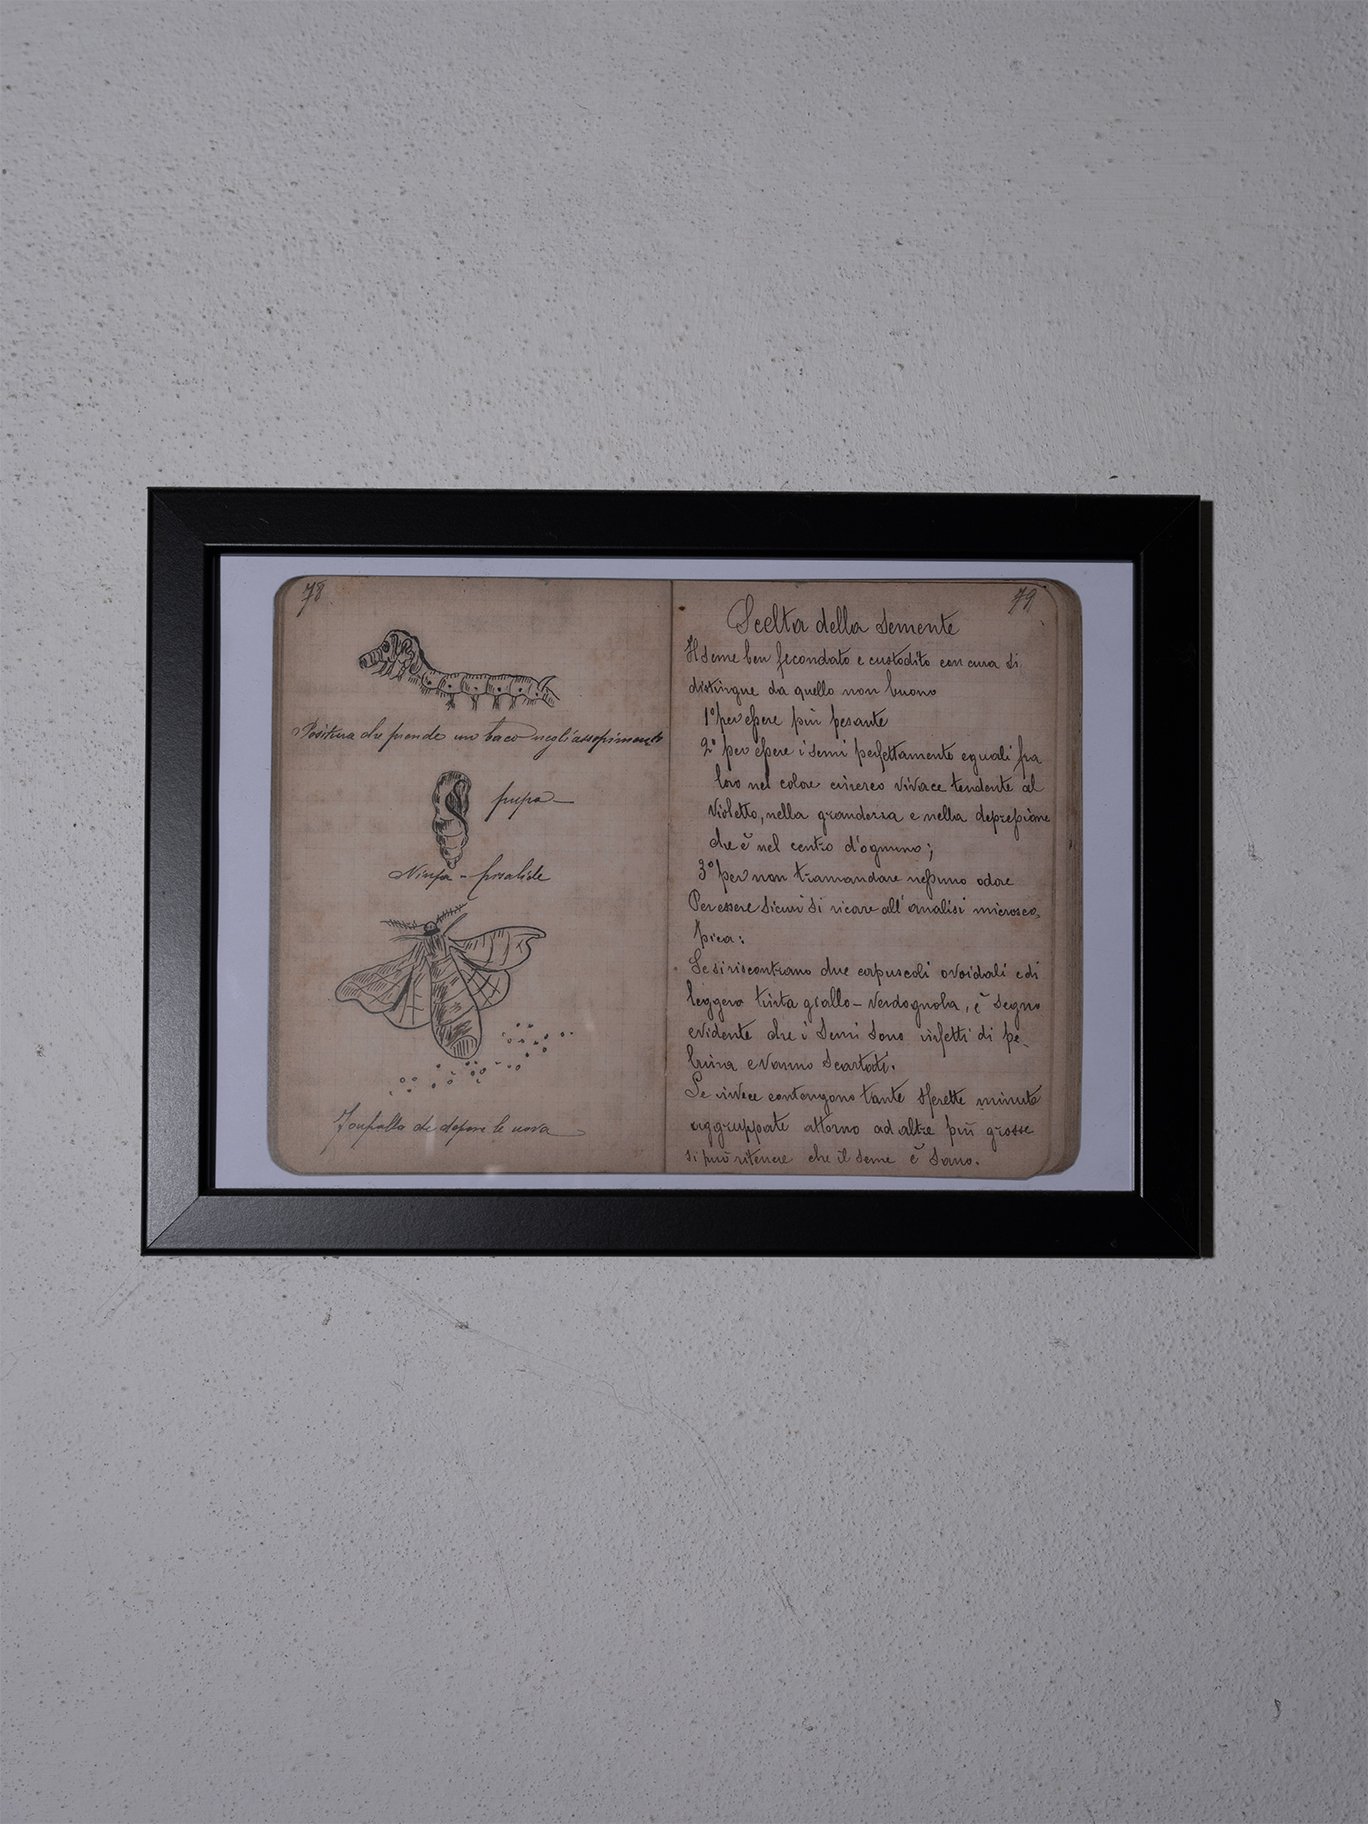 78
Positura che prende un baco negli assopimenti
pupa
Ninfa - crisalide
Farfalla che depone le uova
79
Scelta della Semente
Il seme ben fecondato e custodito con cura si
distingue da quello non buono
1° per essere più pesante
2° per essere i semi perfettamente eguali fra
loro nel colore cinereo vivace tendente al
violetto, nella grandezza e nella depressione
che è nel centro d'ognuno;
3° per non tramandare nessuno odore
Per essere sicuri si ricore all'analisi microsco-
pica:
Se si riscontrano due corpuscoli ovoidali e di
leggera tinta giallo-verdognola, è segno
evidente che i semi sono infetti di pe-
brina e vanno scartati.
Se invece contengono tante sferette minute
aggruppate attorno ad altre più grosse
si può ritenere che il seme è sano.